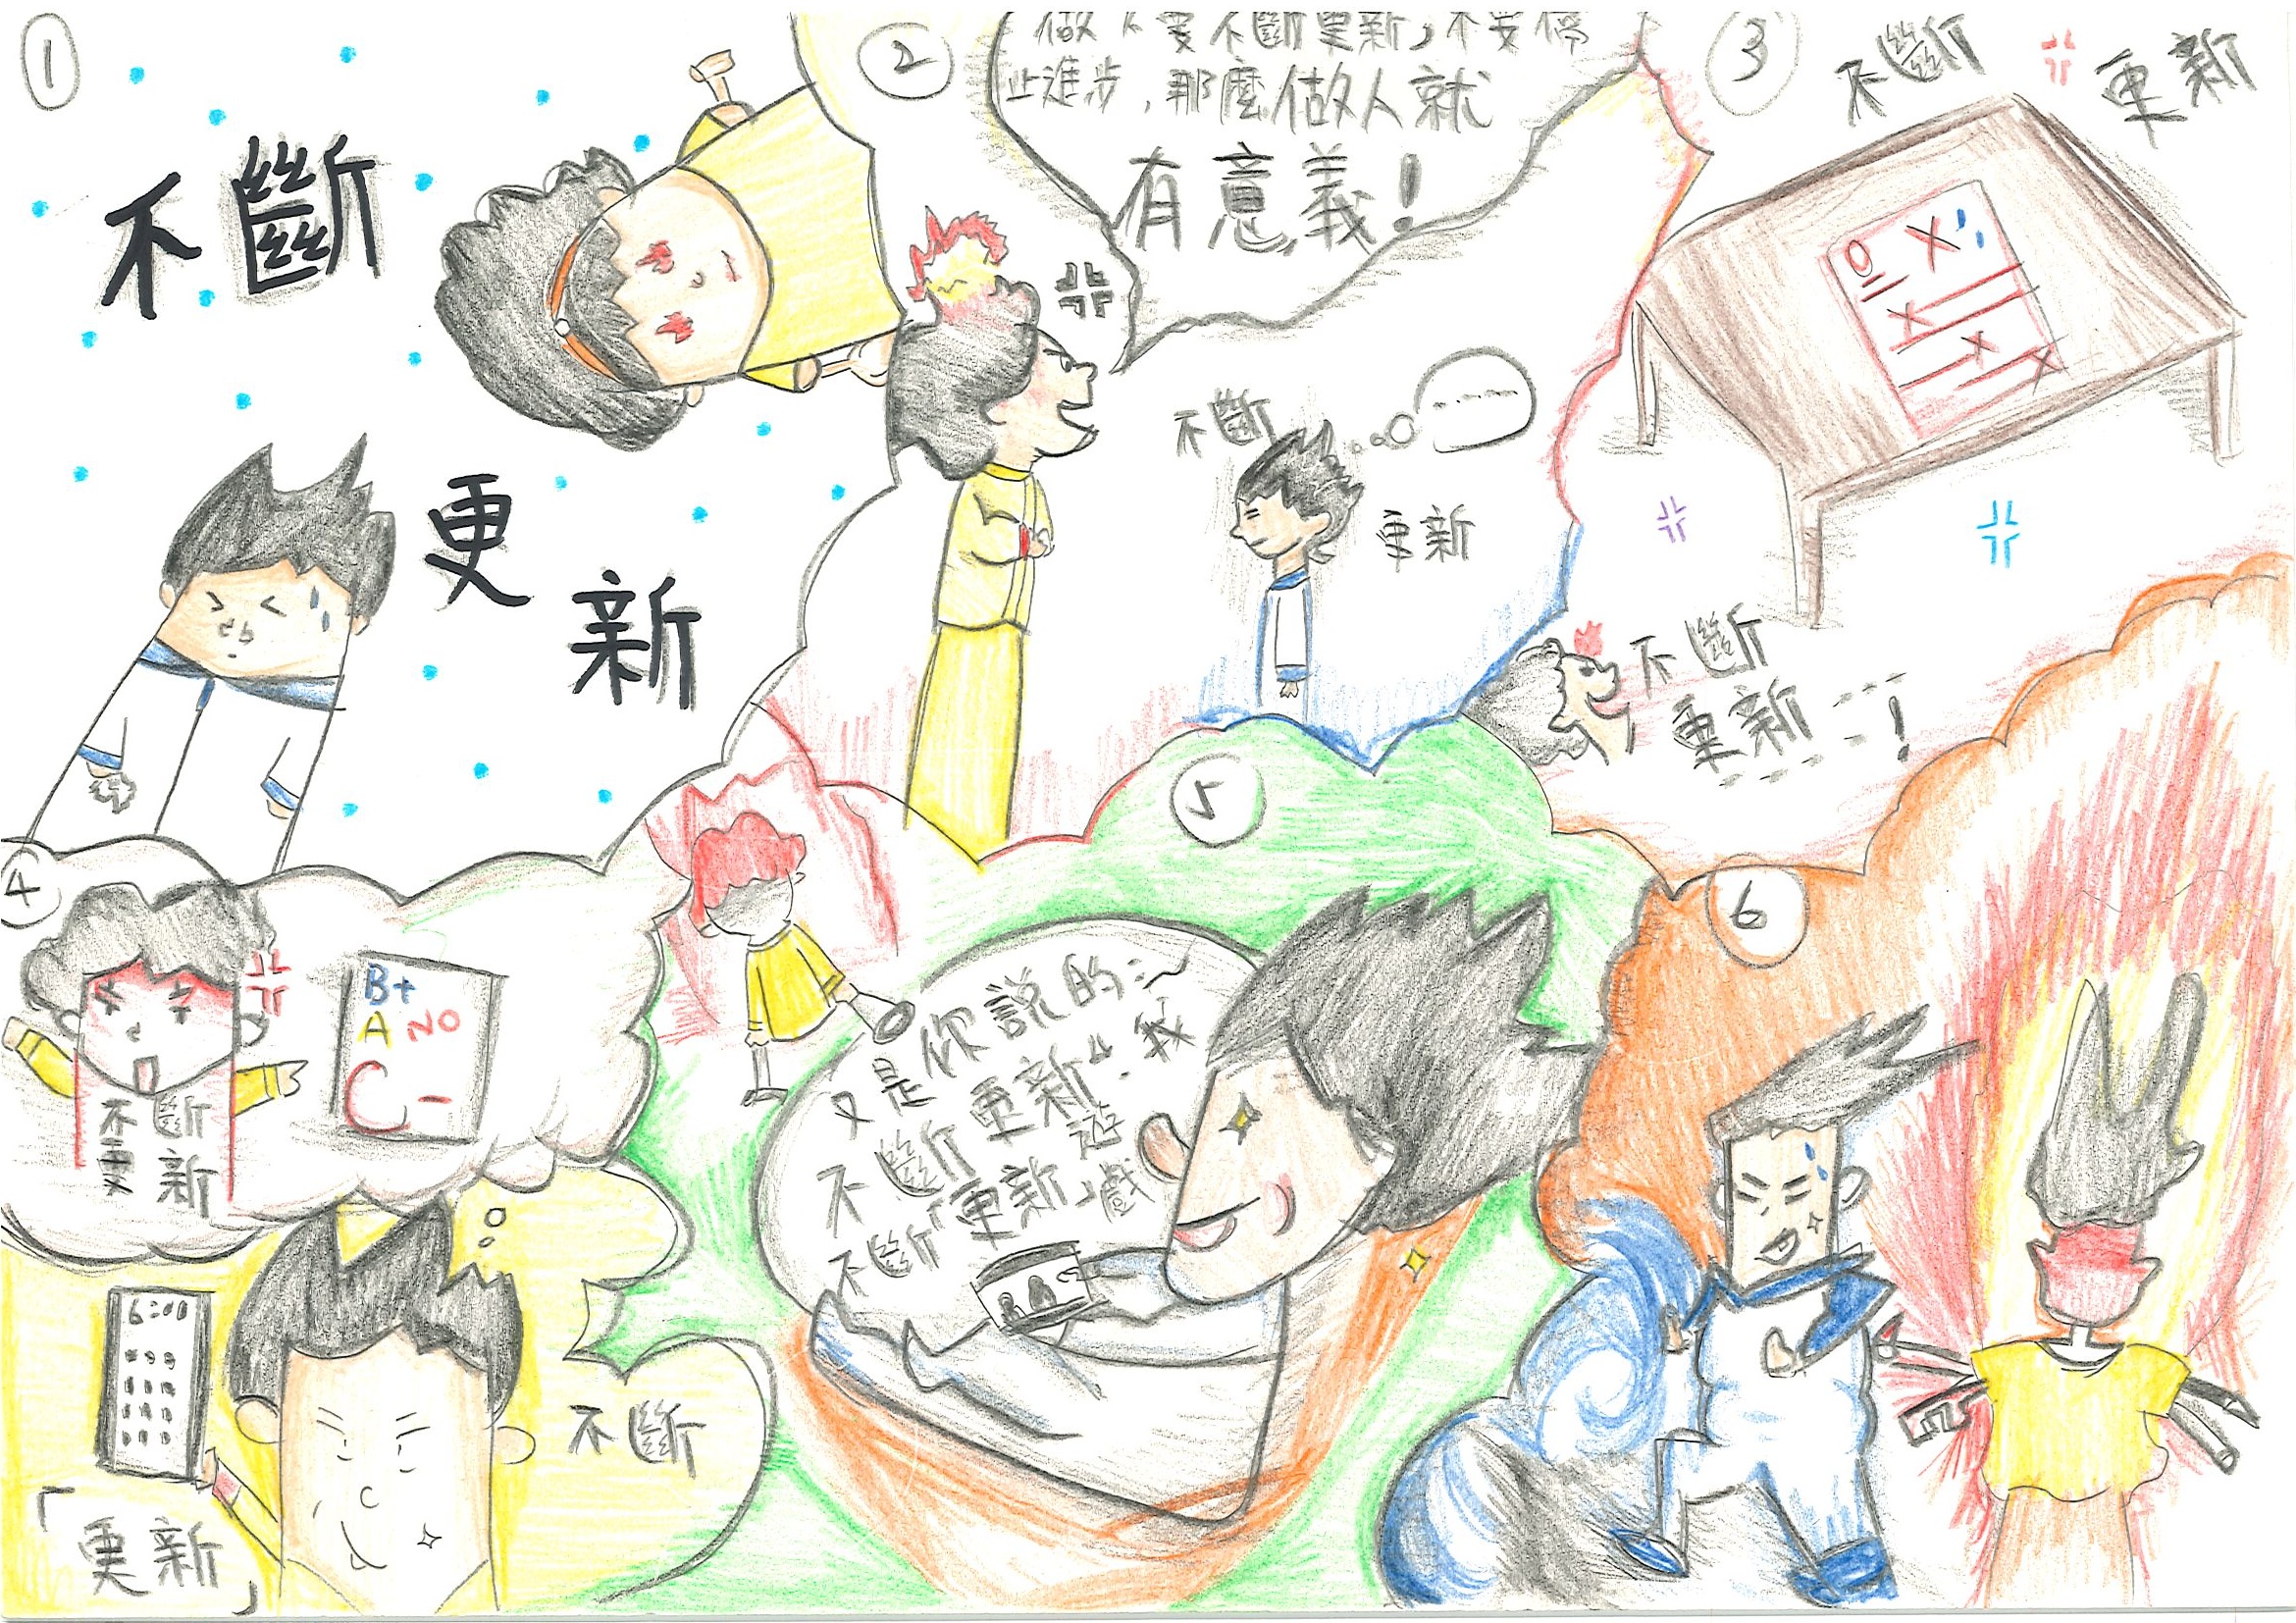 1
不斷
更
新
2
做人要不斷更新，不要停
止進步，那麼做人就
有意義！
不斷
更新
3
不斷
更新
0
不斷
更新----！
4
B+
A NO
C-
不斷
更新
6:00
不斷
「更新」
5
又是你說的：
"不斷更新"．我
不斷「更新」遊戲
6